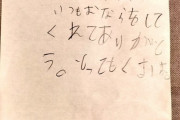 いつもおならをして
くれてありがと
う。とってもくさいよ